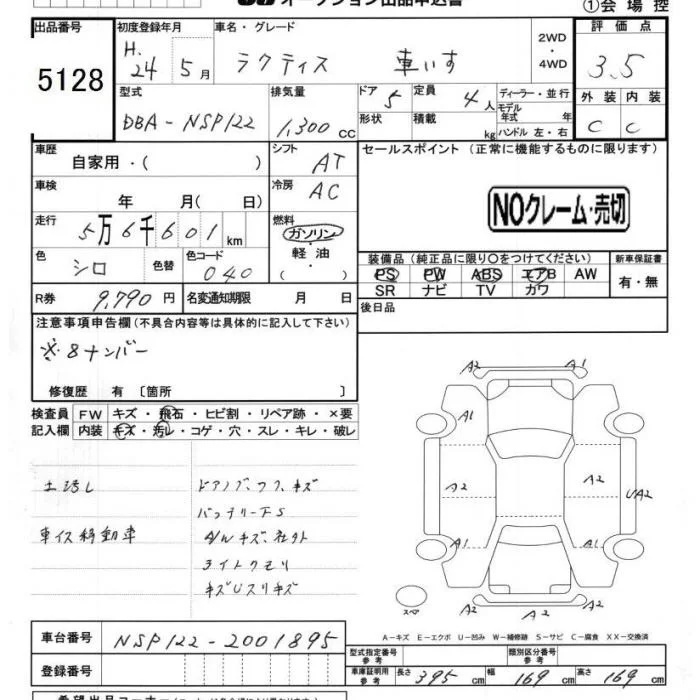 オークション出品申込書 ①会場控
出品番号 初度登録年月 車名・グレード 2WD・4WD 評価点
5128 H.24 5月 ラクティス 車いす 3.5
型式 排気量 ドア 定員 ディーラー・並行 外装 内装
DBA-NSP122 1,300cc 5 4人 モデル年式 年 C C
形状 積載 kg ハンドル 左・右
車歴 シフト セールスポイント(正常に機能するものに限ります)
自家用・( ) AT
車検 冷房
年 月( 日) AC NOクレーム・売切
走行 燃料
5万6千601km ガソリン・軽油・( )
色 色替 色コード 装備品(純正品に限り○をつけてください) 新車保証書
シロ 040 PS PW ABS エアB AW 有・無
SR ナビ TV カワ
R券 9,790円 名変通知期限 月 日 後日品
注意事項申告欄(不具合内容等は具体的に記入して下さい)
※8ナンバー
修復歴 有 〔箇所 〕
検査員 FW キズ・飛石・ヒビ割・リペア跡・×要
記入欄 内装 キズ・汚レ・コゲ・穴・スレ・キレ・破レ
ドアノブ、フク、キズ
バッテリー
車イス移動車
ライトクモリ
A2 A1
A1
A2 A2 A2 UA2
A1 A1
A2 A2
A2
スペア
A-キズ E-エクボ U-凹み W-補修跡 S-サビ C-腐食 XX-交換済
車台番号 NSP122-2001895
型式指定番号 参考 類別区分番号 参考
登録番号 車庫証明用 参考 長さ 395cm 幅 169cm 高さ 169cm